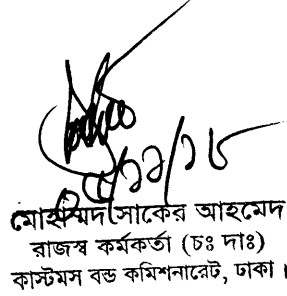 মোহাম্মদ সাকের আহমেদ
রাজস্ব কর্মকর্তা (চঃ দাঃ)
কাস্টমস বন্ড কমিশনারেট, ঢাকা।